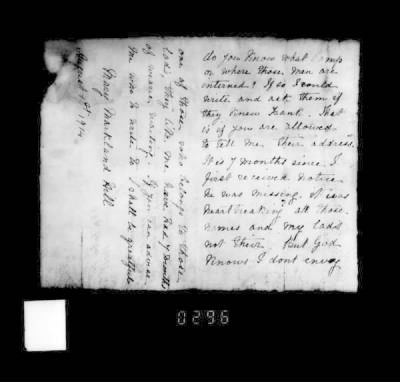 do you know what
or where those men are
interned? If so I could
write and ask them if
they knew Frank. That
is if you are allowed
to tell me their address.
It is 7 months since I
first received notice
he was missing. It was
heartbreaking all those
names and my lads
not there. But God
knows I dont envy
one of those who belongs to those
lads, they like me have had 7 months
of weary waiting. If you can advise
me who to write to I shall be grateful
Mary Markland Hill
August 1st 1917
0296